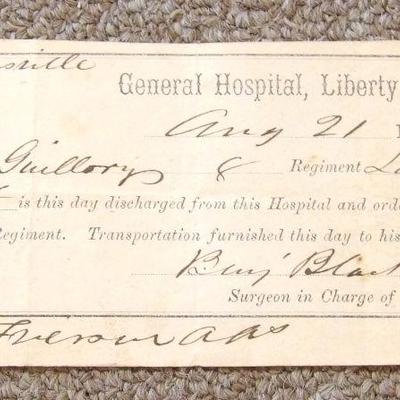 sville
General Hospital, Liberty
Aug 21
Guillory 8 Regiment La
is this day discharged from this Hospital and ord
Regiment. Transportation furnished this day to his
Benj' Black
Surgeon in Charge of
AAS